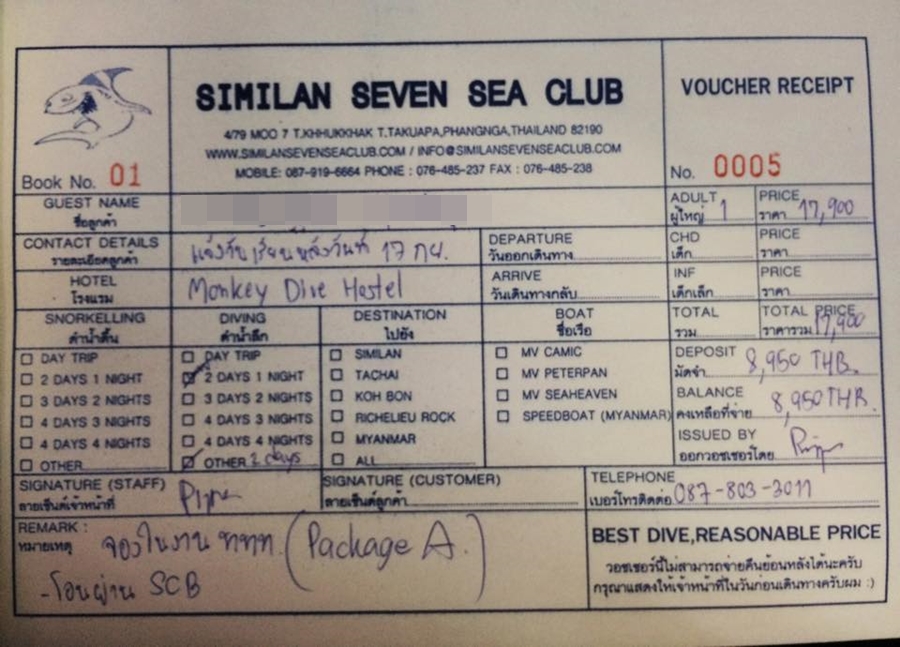 SIMILAN SEVEN SEA CLUB
4/79 MOO 7 T.KHHUKKHAK T.TAKUAPA,PHANGNGA,THAILAND 82190
WWW.SIMILANSEVENSEACLUB.COM / INFO@SIMILANSEVENSEACLUB.COM
MOBILE: 087-919-6664 PHONE : 076-485-237 FAX : 076-485-238
VOUCHER RECEIPT
Book No. 01
No. 0005
GUEST NAME
ชื่อลูกค้า
ADULT PRICE
ผู้ใหญ่ 1 ราคา 17,900
CONTACT DETAILS
รายละเอียดลูกค้า
แจ้งวันเรียนหลังวันที่ 17 กย.
DEPARTURE
วันออกเดินทาง
CHD PRICE
เด็ก ราคา
HOTEL
โรงแรม
Monkey Dive Hostel
ARRIVE
วันเดินทางกลับ
INF PRICE
เด็กเล็ก ราคา
SNORKELLING
ดำน้ำตื้น
DAY TRIP
2 DAYS 1 NIGHT
3 DAYS 2 NIGHTS
4 DAYS 3 NIGHTS
4 DAYS 4 NIGHTS
OTHER
DIVING
ดำน้ำลึก
DAY TRIP
2 DAYS 1 NIGHT
3 DAYS 2 NIGHTS
4 DAYS 3 NIGHTS
4 DAYS 4 NIGHTS
OTHER days
DESTINATION
ไปยัง
SIMILAN
TACHAI
KOH BON
RICHELIEU ROCK
MYANMAR
ALL
BOAT
ชื่อเรือ
MV CAMIC
MV PETERPAN
MV SEAHEAVEN
SPEEDBOAT (MYANMAR)
TOTAL TOTAL PRICE
รวม ราคารวม 17,900
DEPOSIT
มัดจำ 8,950 THB.
BALANCE
คงเหลือที่จ่าย 8,950 THB.
ISSUED BY
ออกวอชเชอร์โดย
SIGNATURE (STAFF)
ลายเซ็นต์เจ้าหน้าที่
SIGNATURE (CUSTOMER)
ลายเซ็นต์ลูกค้า
TELEPHONE
เบอร์โทรติดต่อ 087-803-3011
REMARK :
หมายเหตุ จองในงาน ททท. (Package A.)
-โอนผ่าน SCB
BEST DIVE,REASONABLE PRICE
วอชเชอร์นี้ไม่สามารถจ่ายคืนย้อนหลังได้นะครับ
กรุณาแสดงให้เจ้าหน้าที่ในวันก่อนเดินทางครับผม :)